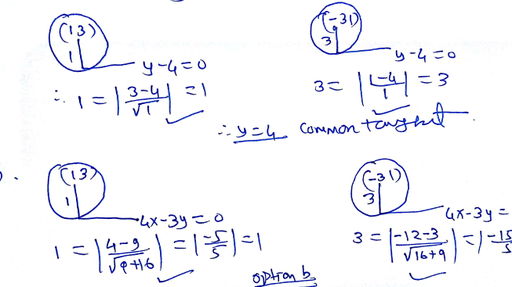 (13)
1
y-4=0
∴ 1 = |3-4/√1| = 1
(-31)
3
y-4=0
3 = |1-4/1| = 3
∴ y=4 common tangent
(13)
1
4x-3y=0
1 = |4-9/√9+16| = |-5/5| = 1
(-31)
3
4x-3y=
3 = |-12-3/√16+9| = |-15/5
option b